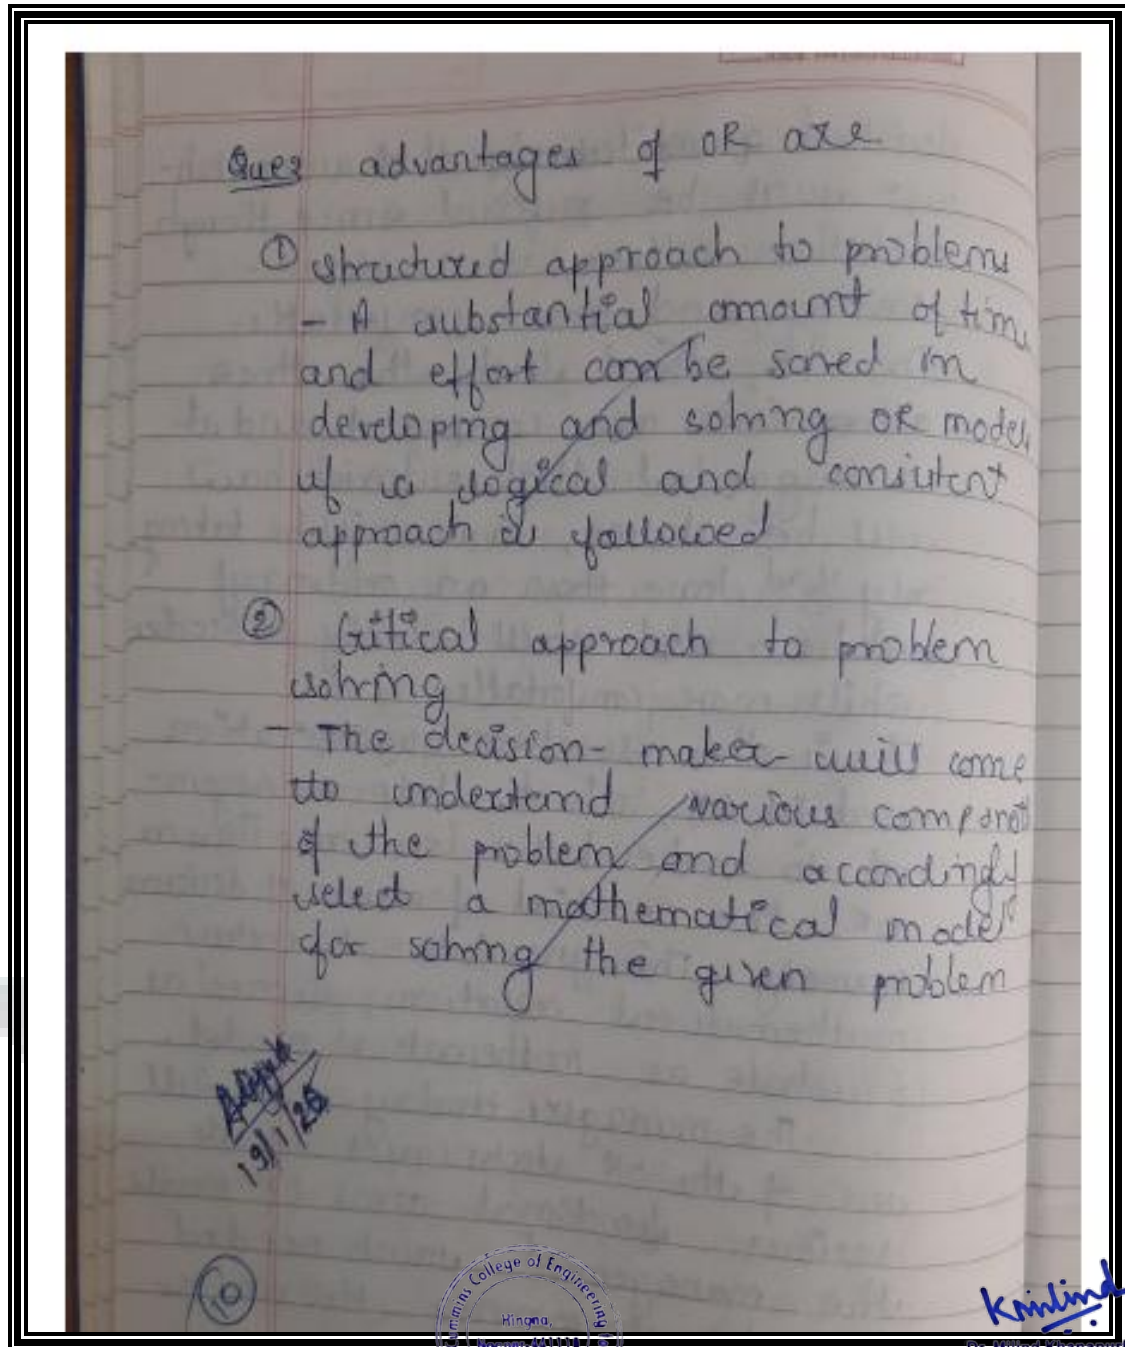 Que2 advantages of OR are
① structured approach to problems
- A substantial amount of time
and effort can be saved in
developing and solving OR models
if a logical and consistent
approach is followed
② Critical approach to problem
solving
- The decision-maker will come
to understand various component
of the problem and accordingly
select a mathematical model
for solving the given problem
19/1/26
10
Cummins College of Engineering
Hingna,